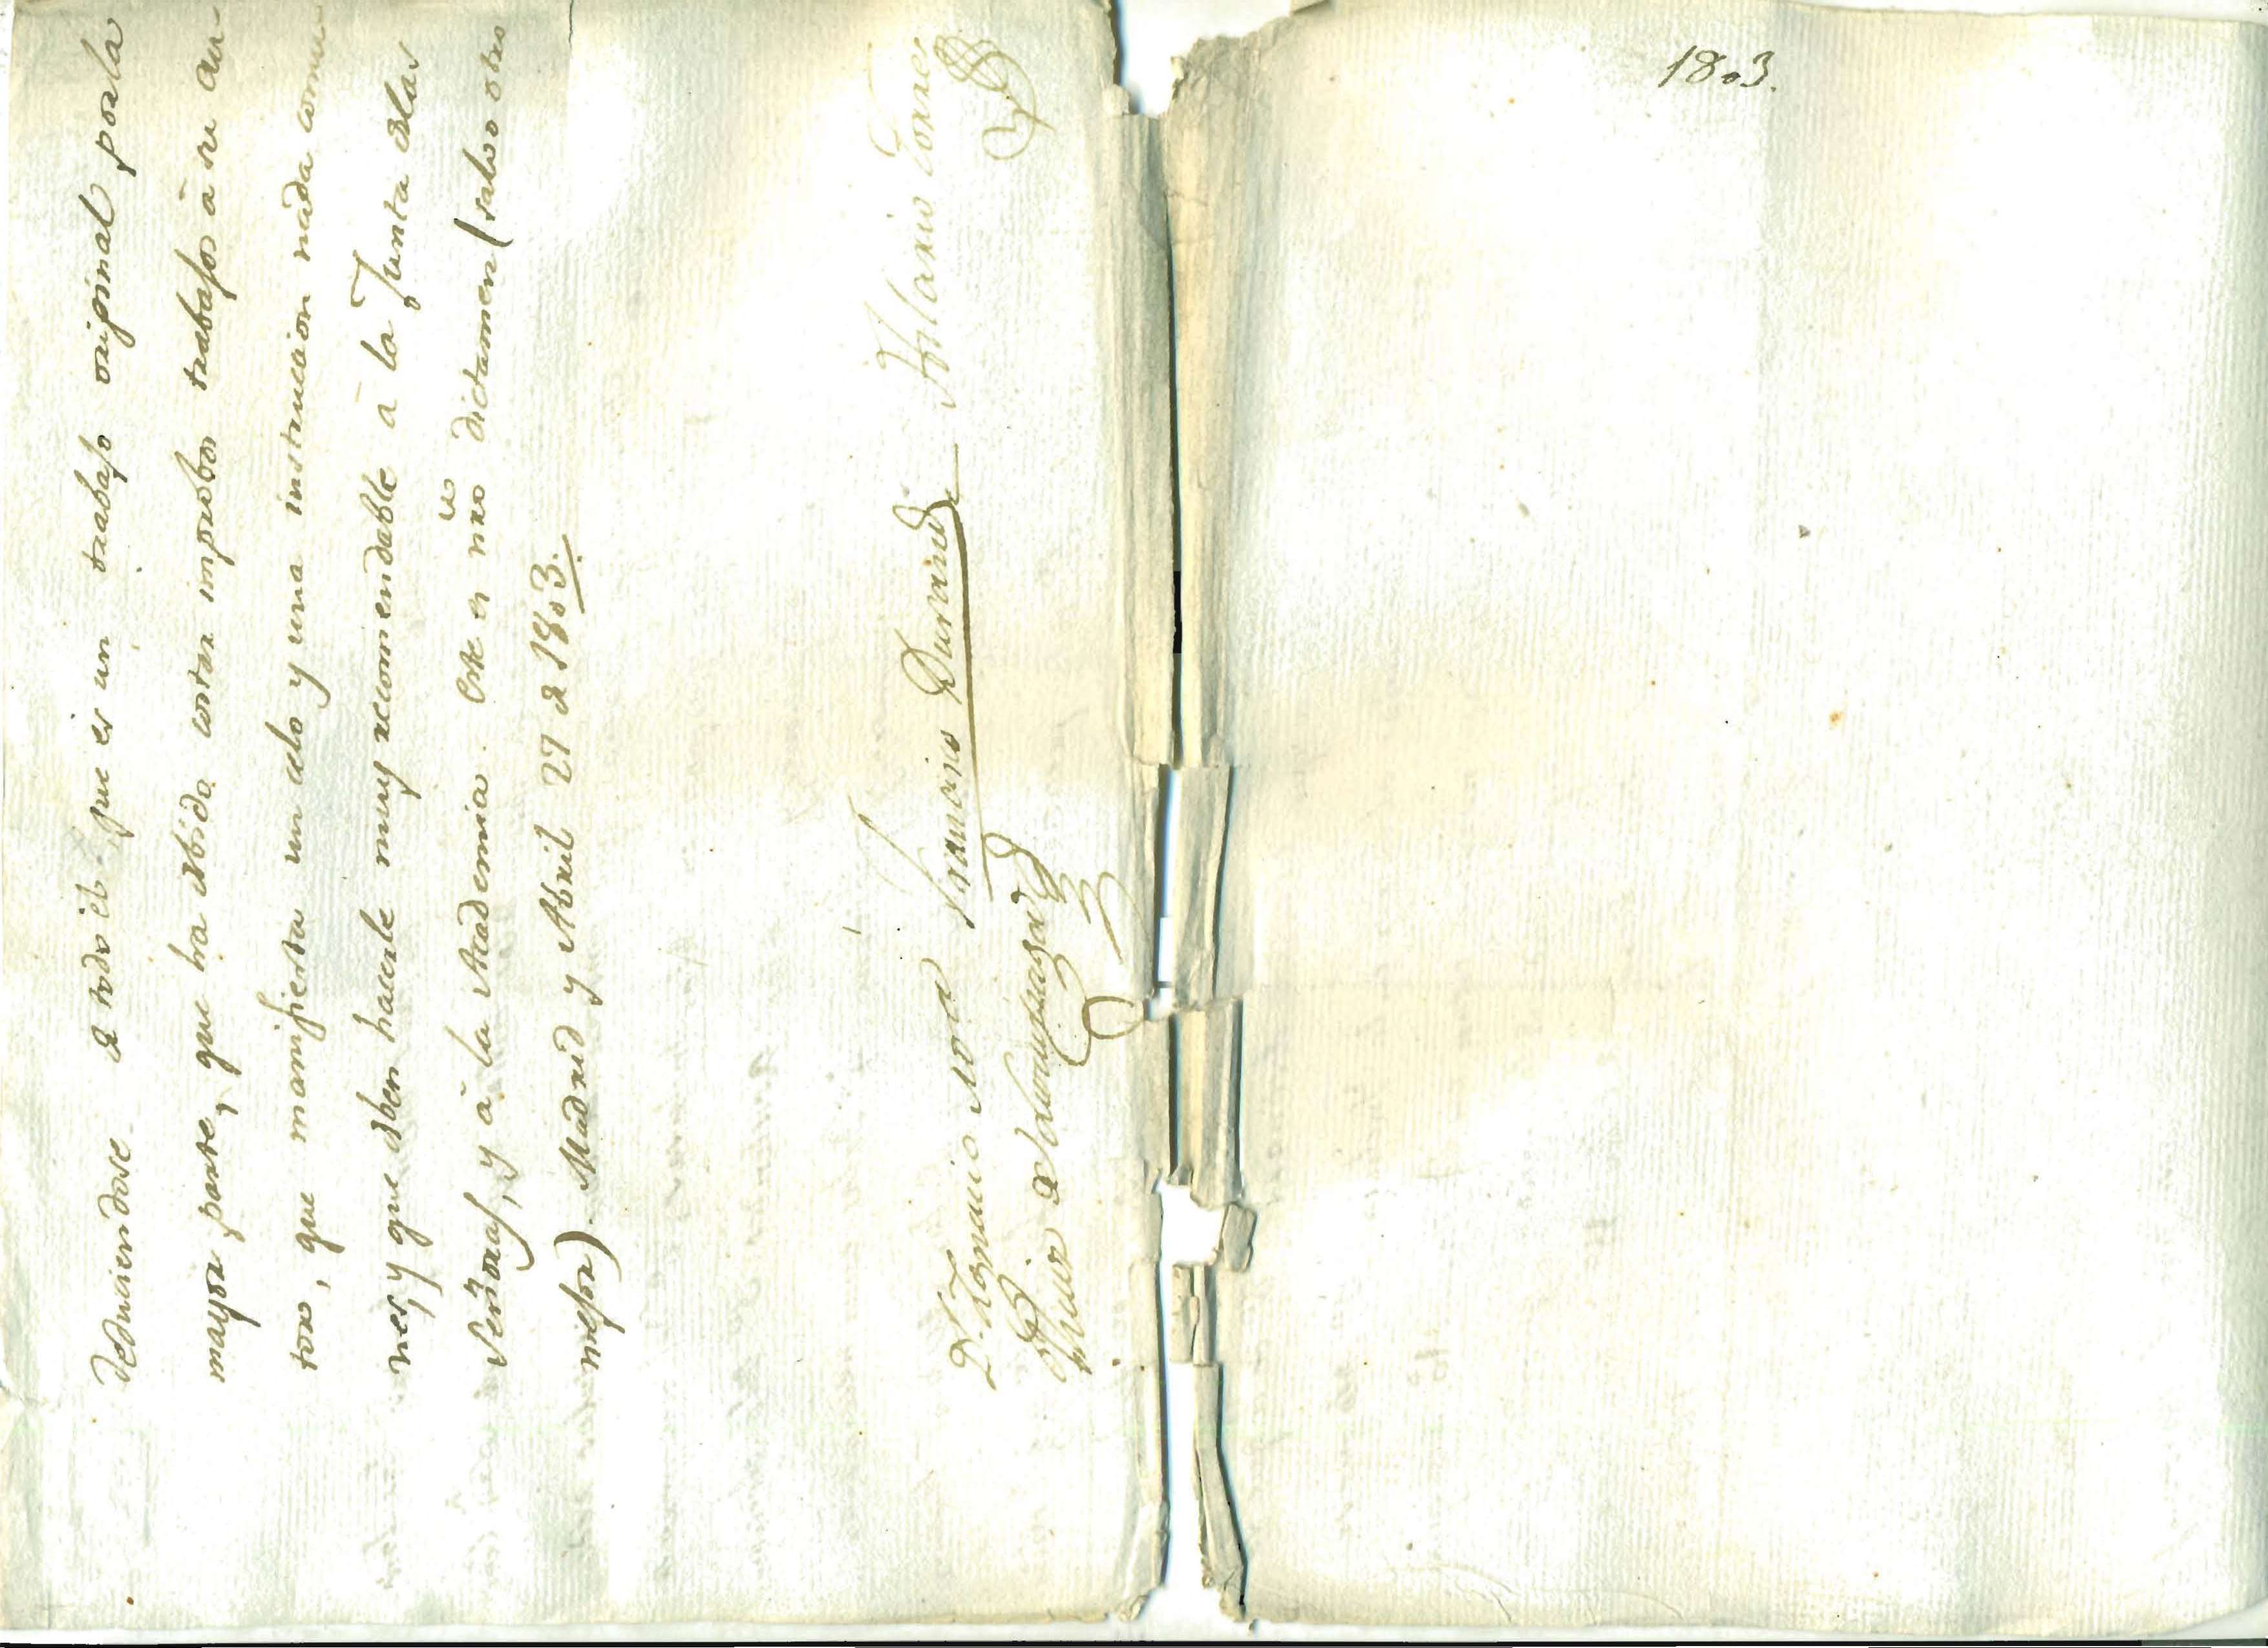 deduciendose de todo el que es un trabajo original por la
mayor parte, que ha debido costar improbos trabajos à su au
tor, que manifiesta un celo y una instruccion nada comu
nes, y que deben hacerle muy recomendable à la Junta de las
Señoras, y à la Academia. Este es nro dictamen (salvo otro
mejor). Madrid y Abril 27 de 1803.
Dr. Ignacio Mod Francisco Durand Hilario Torres
Ruiz de Luzuriaga
1803.